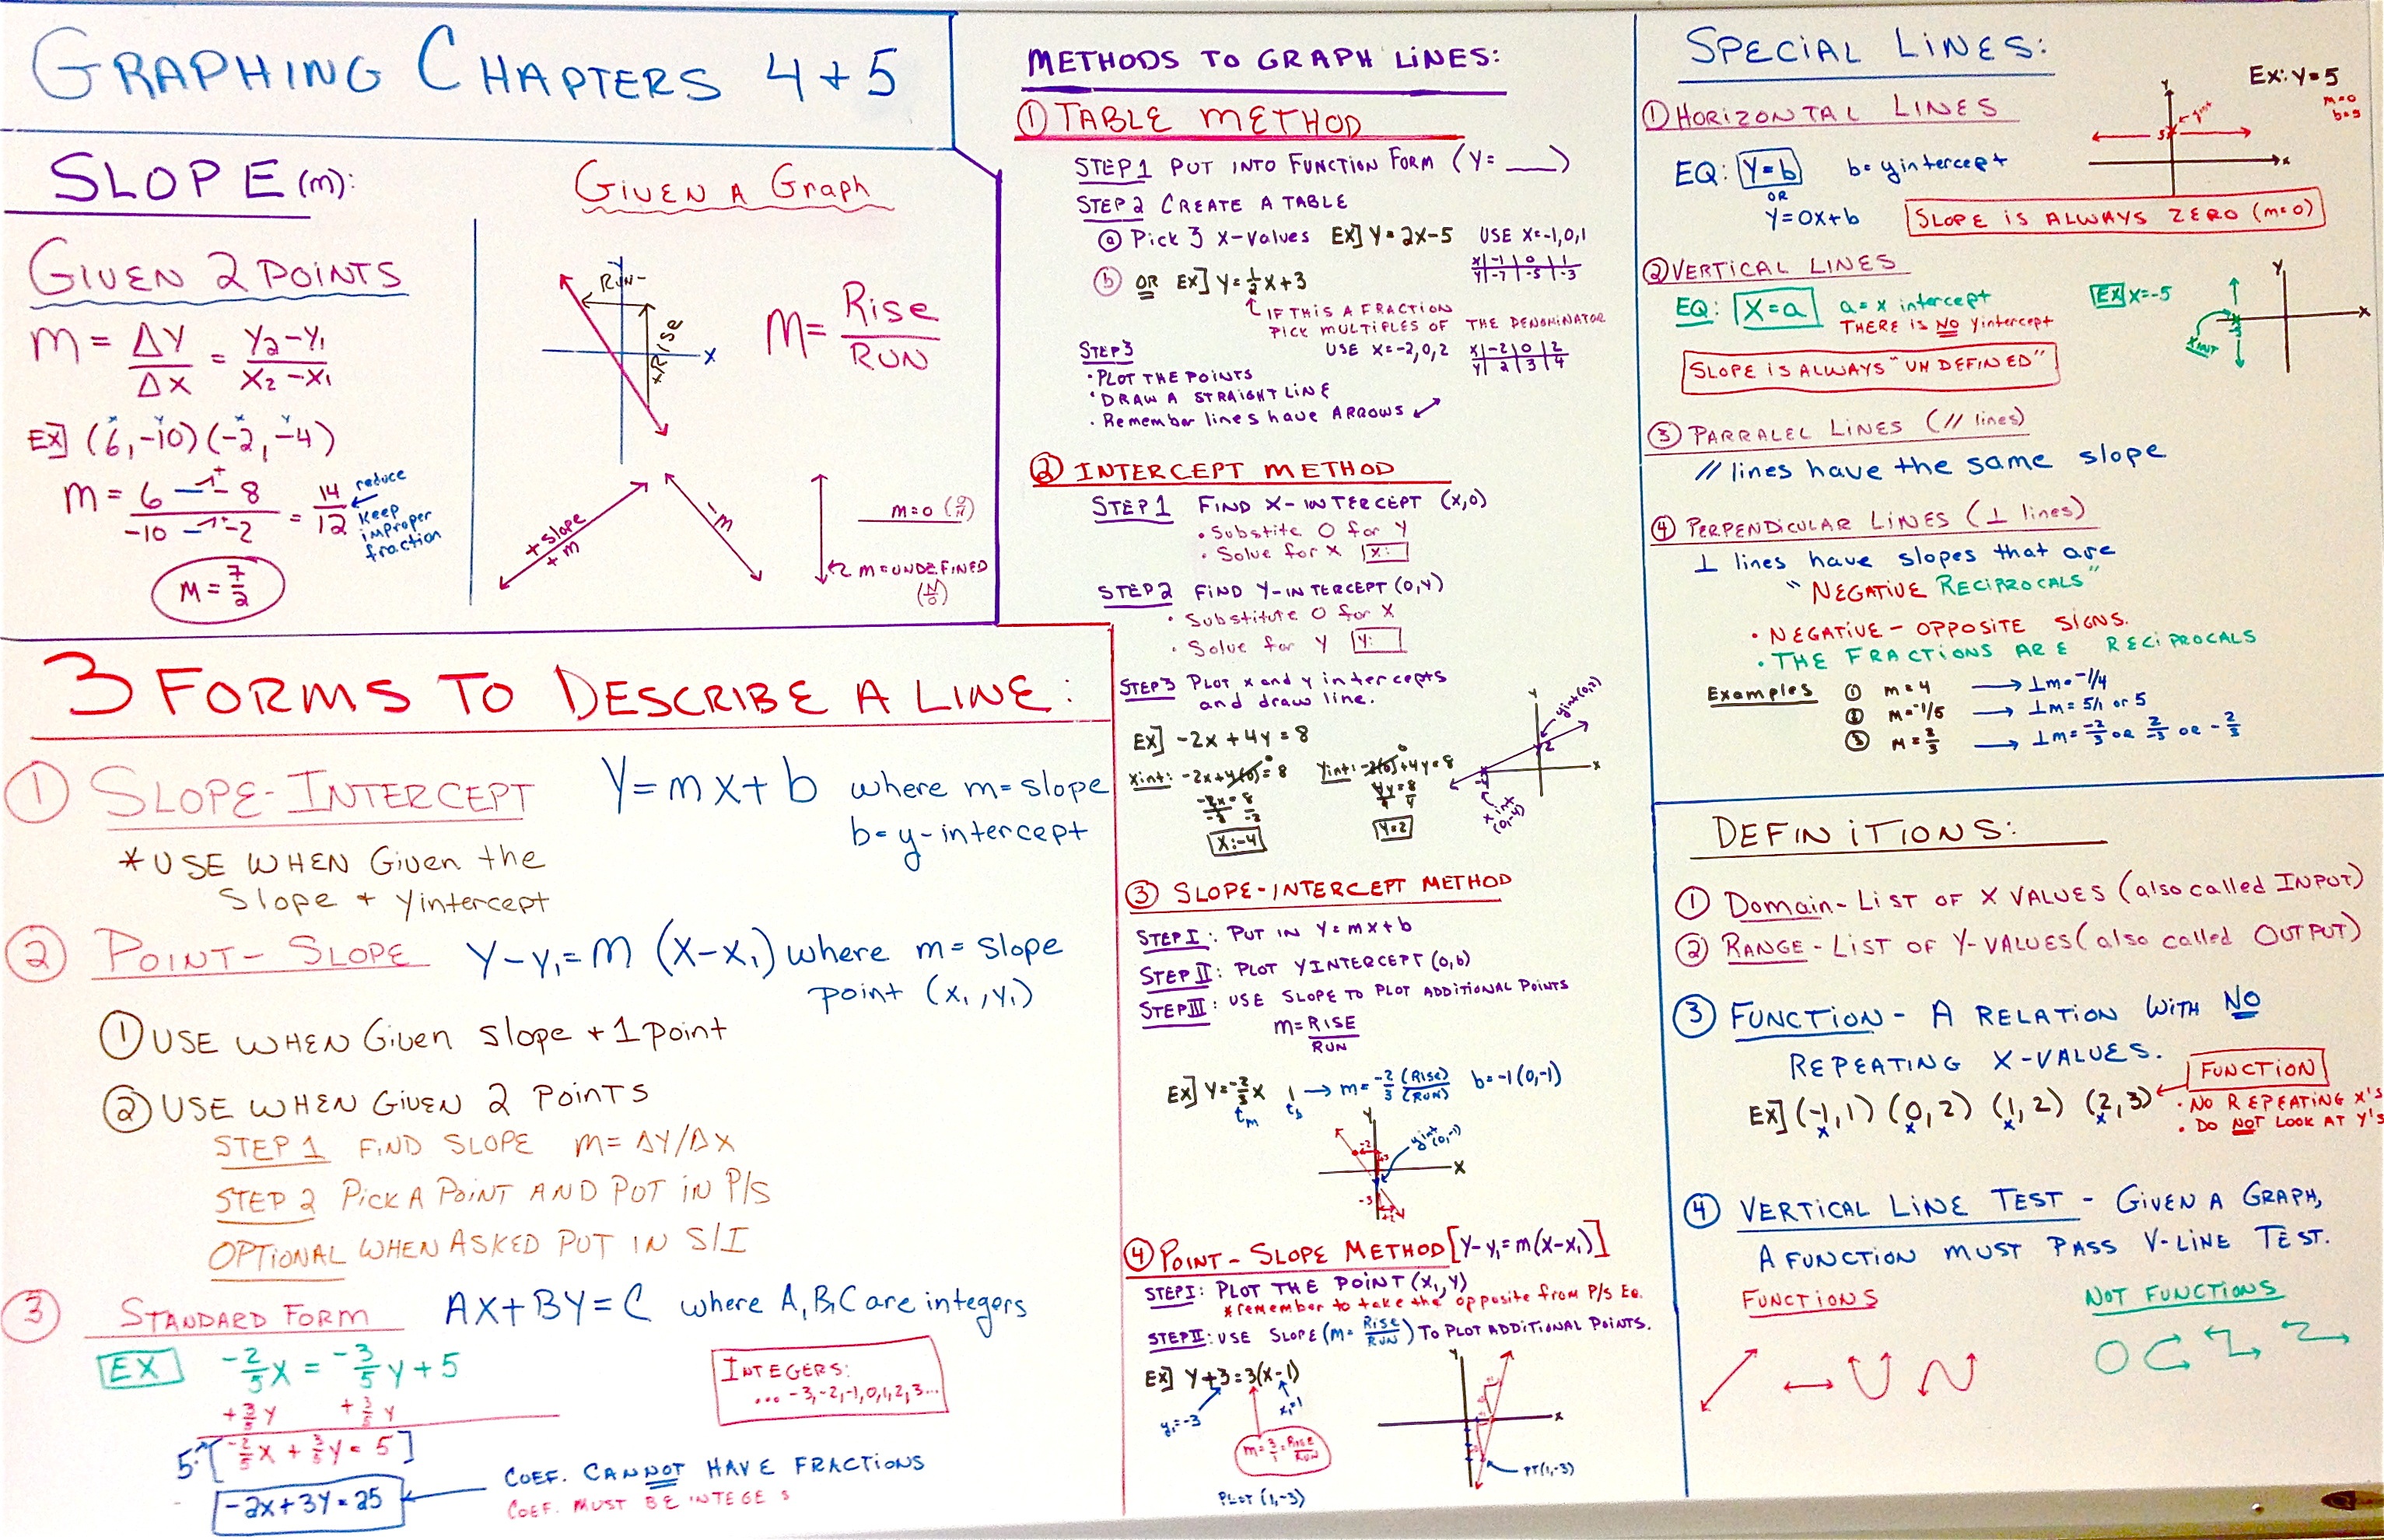 GRAPHING CHAPTERS 4+5
SLOPE (m):
GIVEN 2 POINTS
m = ΔY/ΔX = Y₂-Y₁/X₂-X₁
EX] (6,-10) (-2,-4)
x y x y
m = 6 - - 8 / -10 - - 2 = 14/12
reduce
Keep
improper
fraction
m = 7/2
GIVEN A Graph
RUN-
+RISE
X
m = Rise/RUN
+ slope
+ m
-m
m=0 (0/N)
m=UNDEFINED
(N/0)
3 FORMS TO DESCRIBE A LINE:
① SLOPE-INTERCEPT Y=mx+b where m=slope
b=y-intercept
*USE WHEN Given the
Slope + Yintercept
② POINT-SLOPE Y-Y₁=m(X-X₁) where m=slope
point (X₁,Y₁)
① USE WHEN Given slope + 1 point
② USE WHEN GIVEN 2 POINTS
STEP 1 FIND SLOPE m=ΔY/ΔX
STEP 2 PICK A POINT AND PUT IN P/S
OPTIONAL WHEN ASKED PUT IN S/I
③ STANDARD FORM AX+BY=C where A,B,C are integers
EX -2/5x = -3/5y+5
+3/5y +3/5y
5·[-2/5x + 3/5y = 5]
-2x+3y=25
INTEGERS:
... -3,-2,-1,0,1,2,3...
COEF. CANNOT HAVE FRACTIONS
COEF. MUST BE INTEGE S
METHODS TO GRAPH LINES:
① TABLE METHOD
STEP 1 PUT INTO FUNCTION FORM (Y=___)
STEP 2 CREATE A TABLE
ⓐ Pick 3 x-values EX] Y=2x-5 USE X=-1,0,1
X|-1|0|1
Y|-7|-5|-3
ⓑ OR EX] Y=1/2x+3
IF THIS A FRACTION
PICK MULTIPLES OF THE DENOMINATOR
USE X=-2,0,2
X|-2|0|2
Y|2|3|4
STEP 3
·PLOT THE POINTS
·DRAW A STRAIGHT LINE
·Remember lines have ARROWS
② INTERCEPT METHOD
STEP 1 FIND X-INTERCEPT (X,0)
·Substite 0 for Y
·Solve for X X:
STEP 2 FIND Y-INTERCEPT (0,Y)
·Substitute 0 for X
·Solve for Y Y:
STEP 3 PLOT x and y intercepts
and draw line.
EX] -2x+4y=8
xint: -2x+4(0)=8
-2x=8
-2 -2
X=-4
Yint: -2(0)+4y=8
4y=8
4 4
Y=2
Y
yint(0,2)
2
-4
X
xint
(0,-4)
③ SLOPE-INTERCEPT METHOD
STEP I: PUT IN Y=mx+b
STEP II: PLOT YINTERCEPT (0,b)
STEP III: USE SLOPE TO PLOT ADDITIONAL POINTS
m=RISE/RUN
EX] Y=-2/3x 1 → m=-2/3 (RISE)/(RUN) b=-1 (0,-1)
m b
Y
yint(0,-1)
X
④ POINT-SLOPE METHOD [Y-Y₁=m(X-X₁)]
STEP I: PLOT THE POINT (X₁,Y)
*remember to take the opposite from P/S EQ.
STEP II: USE SLOPE (m=RISE/RUN) TO PLOT ADDITIONAL POINTS.
EX] Y+3=3(x-1)
y₁=-3
x₁=1
m=3/1=RISE/RUN
PLOT (1,-3)
Y
X
PT(1,-3)
SPECIAL LINES:
① HORIZONTAL LINES
EQ: Y=b b=yintercept
OR
Y=0x+b
SLOPE IS ALWAYS ZERO (m=0)
Ex: Y=5
m=0
b=5
Y
yint
5
X
② VERTICAL LINES
EQ: X=a a=x intercept
THERE IS NO Yintercept
SLOPE IS ALWAYS "UNDEFINED"
EX X=-5
Y
X
xint
③ PARRALEL LINES (// lines)
// lines have the same slope
④ PERPENDICULAR LINES (⊥ lines)
⊥ lines have slopes that are
"NEGATIVE RECIPROCALS"
·NEGATIVE - OPPOSITE SIGNS.
·THE FRACTIONS ARE RECIPROCALS
Examples ① m=4 → ⊥m=-1/4
② m=-1/5 → ⊥m=5/1 or 5
③ m=3/2 → ⊥m=-2/3 OR 2/-3 OR -2/3
DEFINITIONS:
① Domain-LIST OF X VALUES (also called INPUT)
② RANGE-LIST OF Y-VALUES (also called OUTPUT)
③ FUNCTION - A RELATION WITH NO
REPEATING X-VALUES.
EX] (-1,1) (0,2) (1,2) (2,3)
x x x x
FUNCTION
·NO REPEATING X'S
·DO NOT LOOK AT Y'S
④ VERTICAL LINE TEST - GIVEN A GRAPH,
A FUNCTION MUST PASS V-LINE TEST.
FUNCTIONS
NOT FUNCTIONS